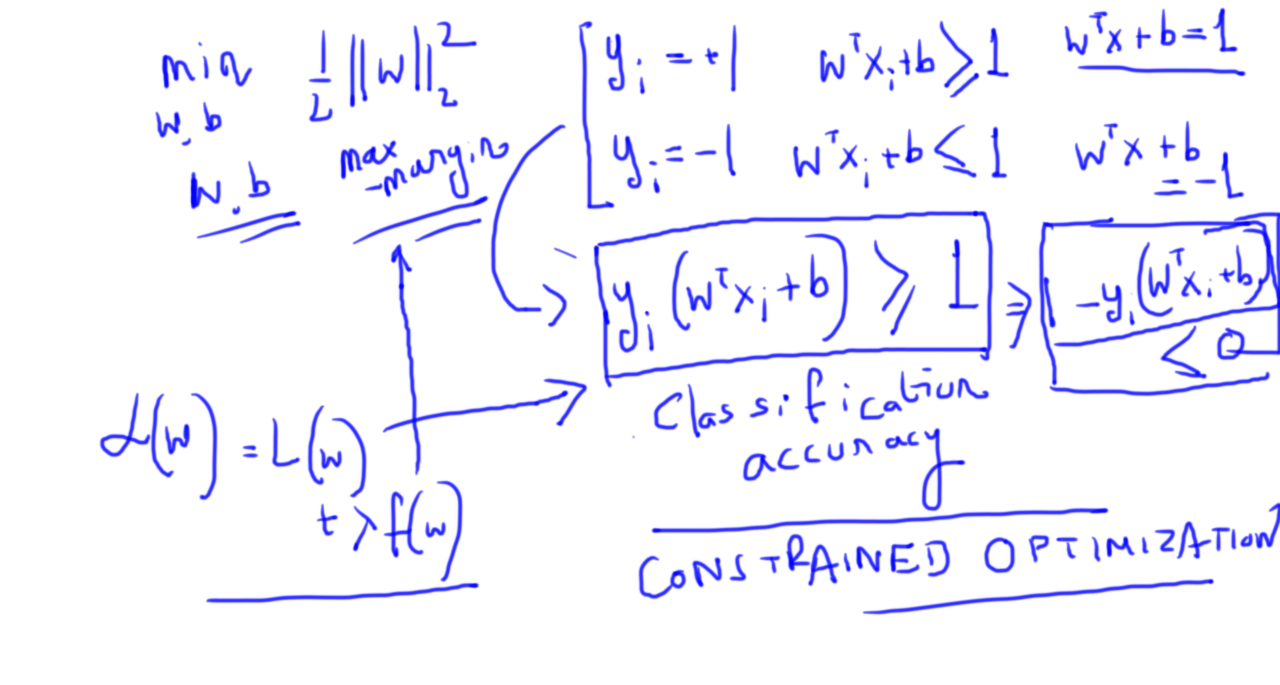 min 1/2 ||w||₂²
w, b
w, b
max
-margin
yᵢ = +1 wᵀxᵢ+b ⩾ 1 wᵀx+b=1
yᵢ = -1 wᵀxᵢ+b ⩽ 1 wᵀx+b
= -1
yᵢ(wᵀxᵢ+b) ⩾ 1 ⇒ -yᵢ(wᵀxᵢ+b)
⩽ 0
Classification
accuracy
ℒ(w) = L(w)
+ λ f(w)
CONSTRAINED OPTIMIZATION